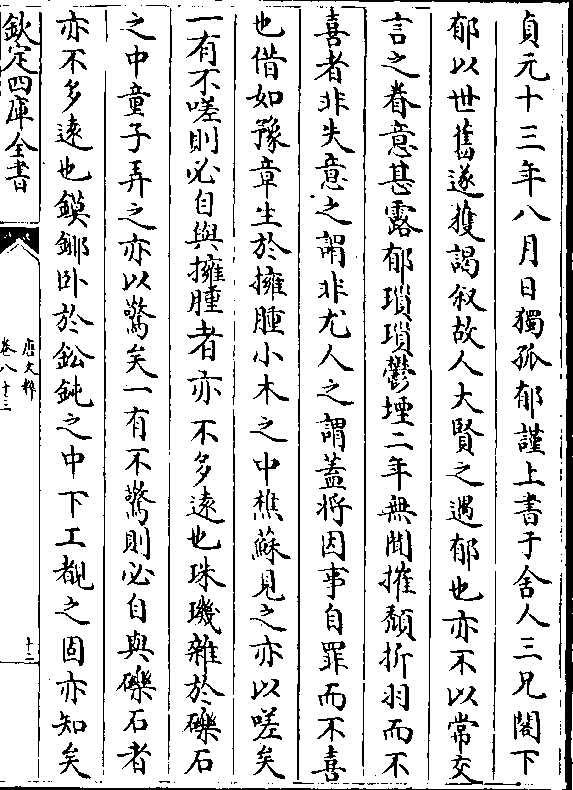 貞元十三年八月日獨孤郁謹上書于舍人三兄閣下
郁以世舊遂獲謁叙故人大賢之遇郁也亦不以常交
言之眷意甚露郁瑣瑣鬱堙二年無聞摧頽折羽而不
喜者非失意之謂非尤人之謂蓋將因事自罪而不喜
也借如豫章生於擁腫小木之中樵蘇見之亦以嗟矣
一有不嗟則必自與擁腫者亦不多遠也珠璣雜於礫石
之中童子弄之亦以驚矣一有不驚則必自與礫石者
亦不多遠也鏌鋣卧於鈆鈍之中下工覩之固亦知矣
欽定四庫全書
唐文粹
卷八十三
十三